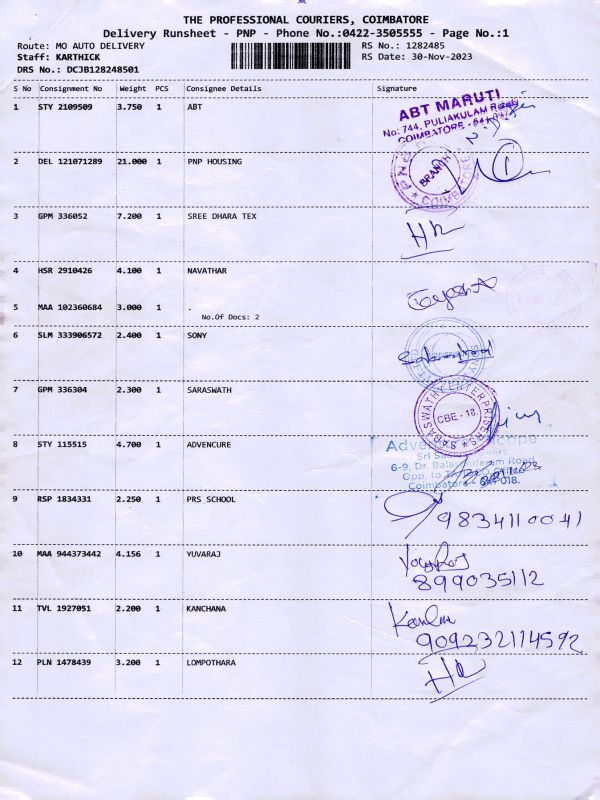 THE PROFESSIONAL COURIERS, COIMBATORE
Delivery Runsheet - PNP - Phone No.:0422-3505555 - Page No.:1
Route: MO AUTO DELIVERY RS No.: 1282485
Staff: KARTHICK RS Date: 30-Nov-2023
DRS No.: DCJB128248501
S No Consignment No Weight PCS Consignee Details Signature
1 STY 2109509 3.750 1 ABT
ABT MARUTI
No: 744, PULIAKULAM ROAD
COIMBATORE -
2 DEL 121071289 21.000 1 PNP HOUSING
BRANCH
3 GPM 336052 7.200 1 SREE DHARA TEX
4 HSR 2910426 4.100 1 NAVATHAR
5 MAA 102360684 3.000 1 .
No.Of Docs: 2
6 SLM 333906572 2.400 1 SONY
7 GPM 336304 2.300 1 SARASWATH
SARASWATHY ENTERPRISERS
CBE - 18
8 STY 115515 4.700 1 ADVENCURE
Sri
6-9, Dr. Balasundaram Road
Opp. to
Coimbatore - 641 018.
9 RSP 1834331 2.250 1 PRS SCHOOL
9834110041
10 MAA 944373442 4.156 1 YUVARAJ
899035112
11 TVL 1927051 2.200 1 KANCHANA
909232114592
12 PLN 1478439 3.200 1 LOMPOTHARA